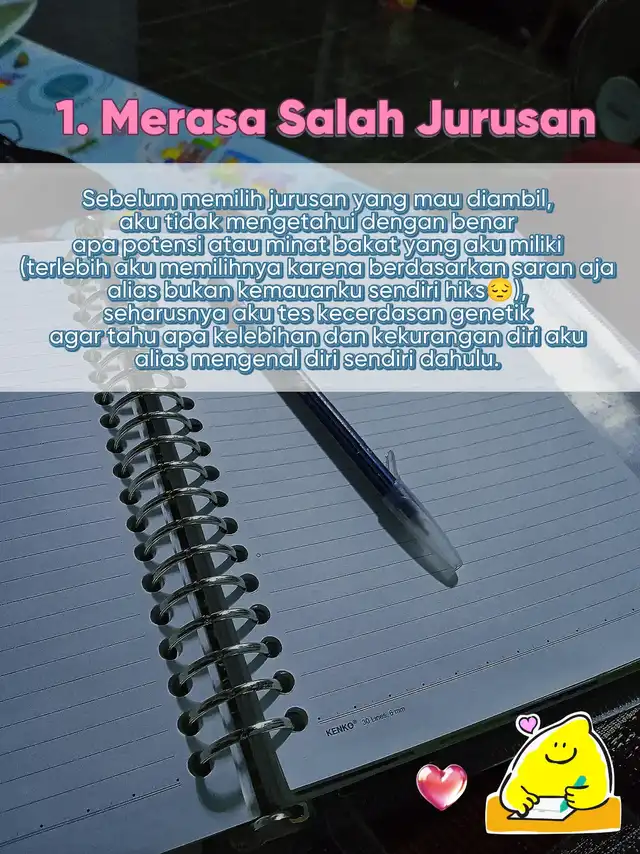 1. Merasa Salah Jurusan
Sebelum memilih jurusan yang mau diambil,
aku tidak mengetahui dengan benar
apa potensi atau minat bakat yang aku miliki
(terlebih aku memilihnya karena berdasarkan saran aja
alias bukan kemauanku sendiri hiks😔),
seharusnya aku tes kecerdasan genetik
agar tahu apa kelebihan dan kekurangan diri aku
alias mengenal diri sendiri dahulu.
KENKO® 30 Lines, 6 mm